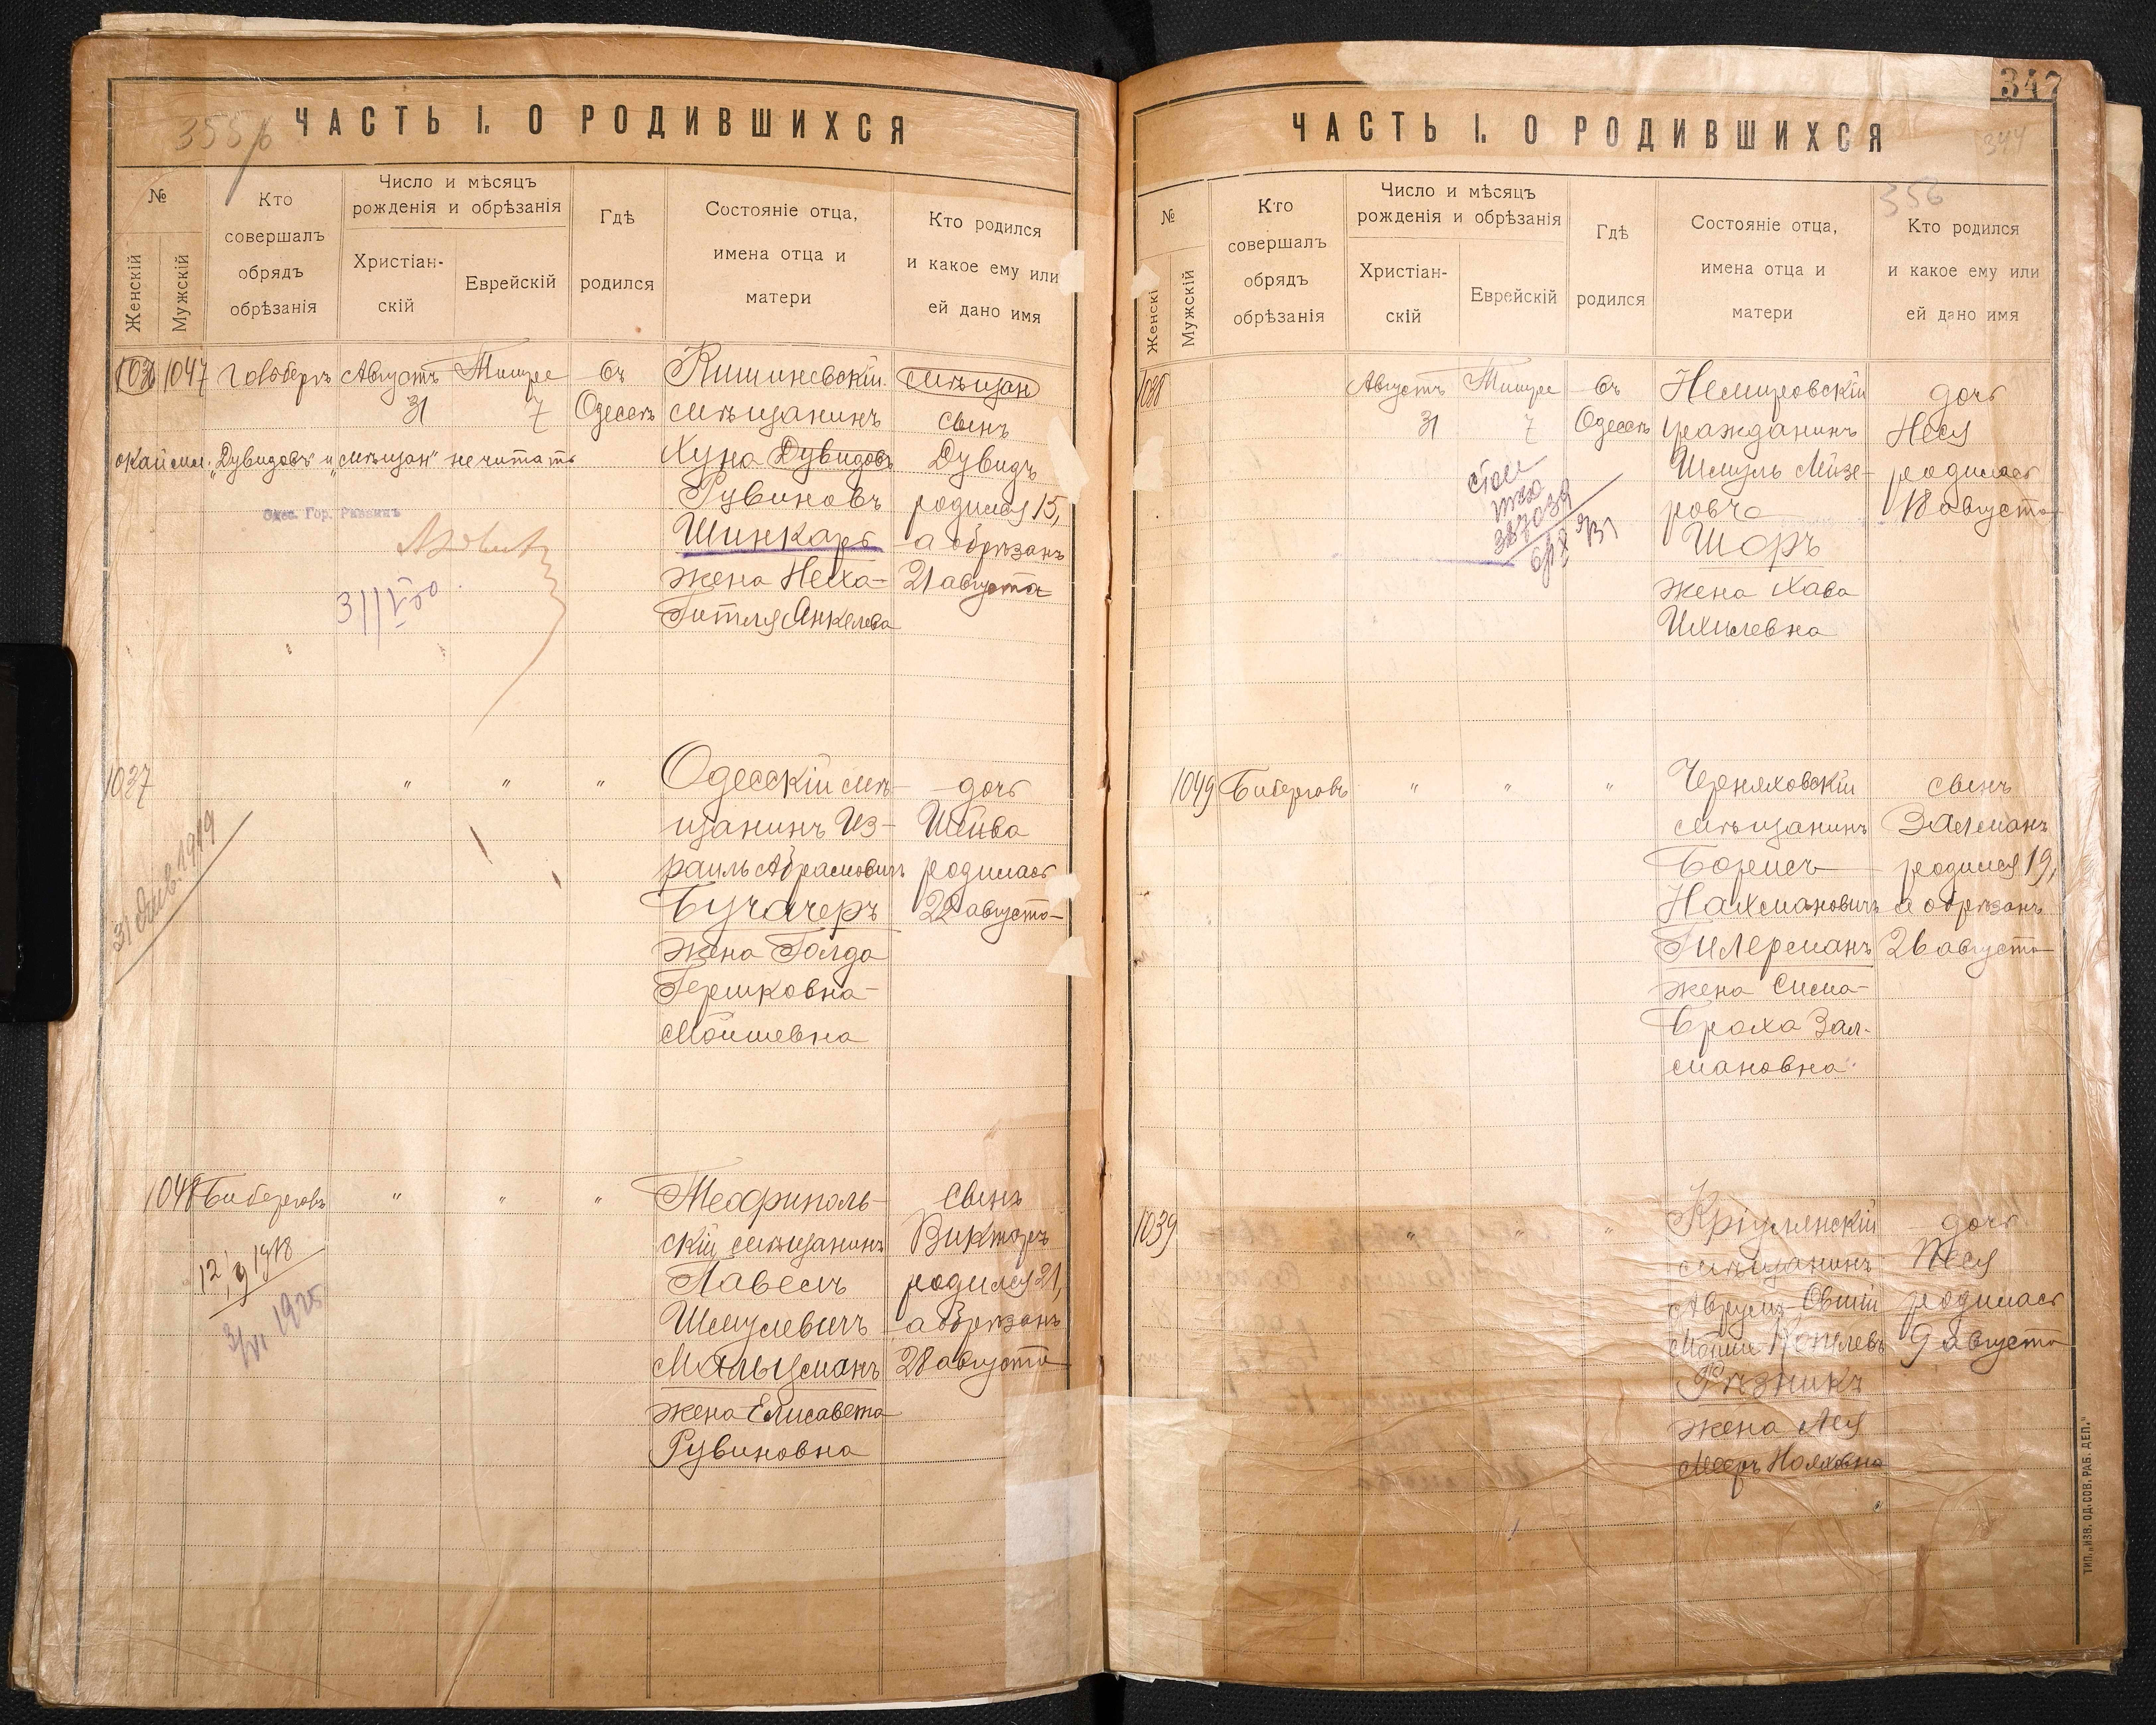 355/б
ЧАСТЬ I. О РОДИВШИХСЯ
№
Женскій
Мужскій
Кто
совершалъ
обрядъ
обрѣзанія
Число и мѣсяцъ
рожденія и обрѣзанія
Христіан-
скій
Еврейскій
Гдѣ
родился
Состояніе отца,
имена отца и
матери
Кто родился
и какое ему или
ей дано имя
1047
Августъ
31
Тишре
7
въ
Одессѣ
Кишиневскій
мѣщанинъ
Хуна Дувидовъ
Рувиновъ
Шинкарь
жена Неха-
Гитля Анкелева
мѣщан
сынъ
Дувидъ
родился 15,
а обрѣзанъ
21 августа
окайми. „Дувидовъ" и „мѣщан" не читать
Одес. Гор. Раввинъ
1037
"
"
"
Одесскій мѣ-
щанинъ Из-
раиль Абрамовичъ
Бучачеръ
жена Голда
Гершковна-
Мойшевна
дочь
Шейва
родилась
22 августа
1048
Бибергов
"
"
"
скій мѣщанинъ
Павелъ
Шмулевичъ
Мальцманъ
жена Елисавета
Рувиновна
сынъ
Викторъ
родился 21,
а обрѣзанъ
28 августа
12/9 1918
3/VI 1925
347
344
356
ЧАСТЬ I. О РОДИВШИХСЯ
№
Женскі
Мужскій
Кто
совершалъ
обрядъ
обрѣзанія
Число и мѣсяцъ
рожденія и обрѣзанія
Христіан-
скій
Еврейскій
Гдѣ
родился
Состояніе отца,
имена отца и
матери
Кто родился
и какое ему или
ей дано имя
1038
Августъ
31
Тишре
7
въ
Одессѣ
Немировскій
гражданинъ
Шмуль Лейзе-
ровъ
Шоръ
жена Хава
Ихилевна
дочь
Неся
родилась
18 августа
1049
Бибергов
"
"
"
Черняховскій
мѣщанинъ
Борисъ
Нахмановичъ
Гилерманъ
жена Сима-
Броха Зал-
мановна
сынъ
Залманъ
родился 19,
а обрѣзанъ
26 августа
1039
"
"
"
Кріулянскій
мѣщанинъ
Аврумъ-Овшій
Рѣзникъ
жена Лея
дочь
родилась
9 августа
ТИП. „ИЗВ. ОД. СОВ. РАБ. ДЕП."